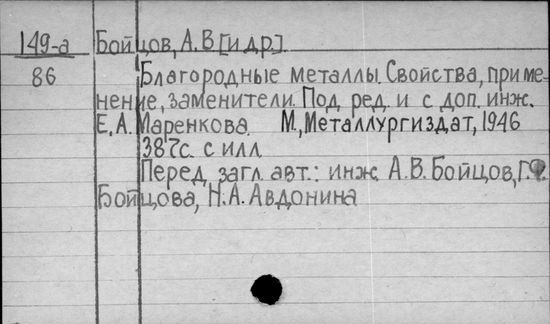 149-а Бойцов, А.В [и др.]
86 Благородные металлы. Свойства, приме-
нение, заменители. Под ред. и с доп. инж.
Е.А. Маренкова. М., Металлургиздат, 1946
387с. с илл.
Перед загл. авт.: инж. А.В. Бойцов, Г.Ф.
Бойцова, Н.А. Авдонина